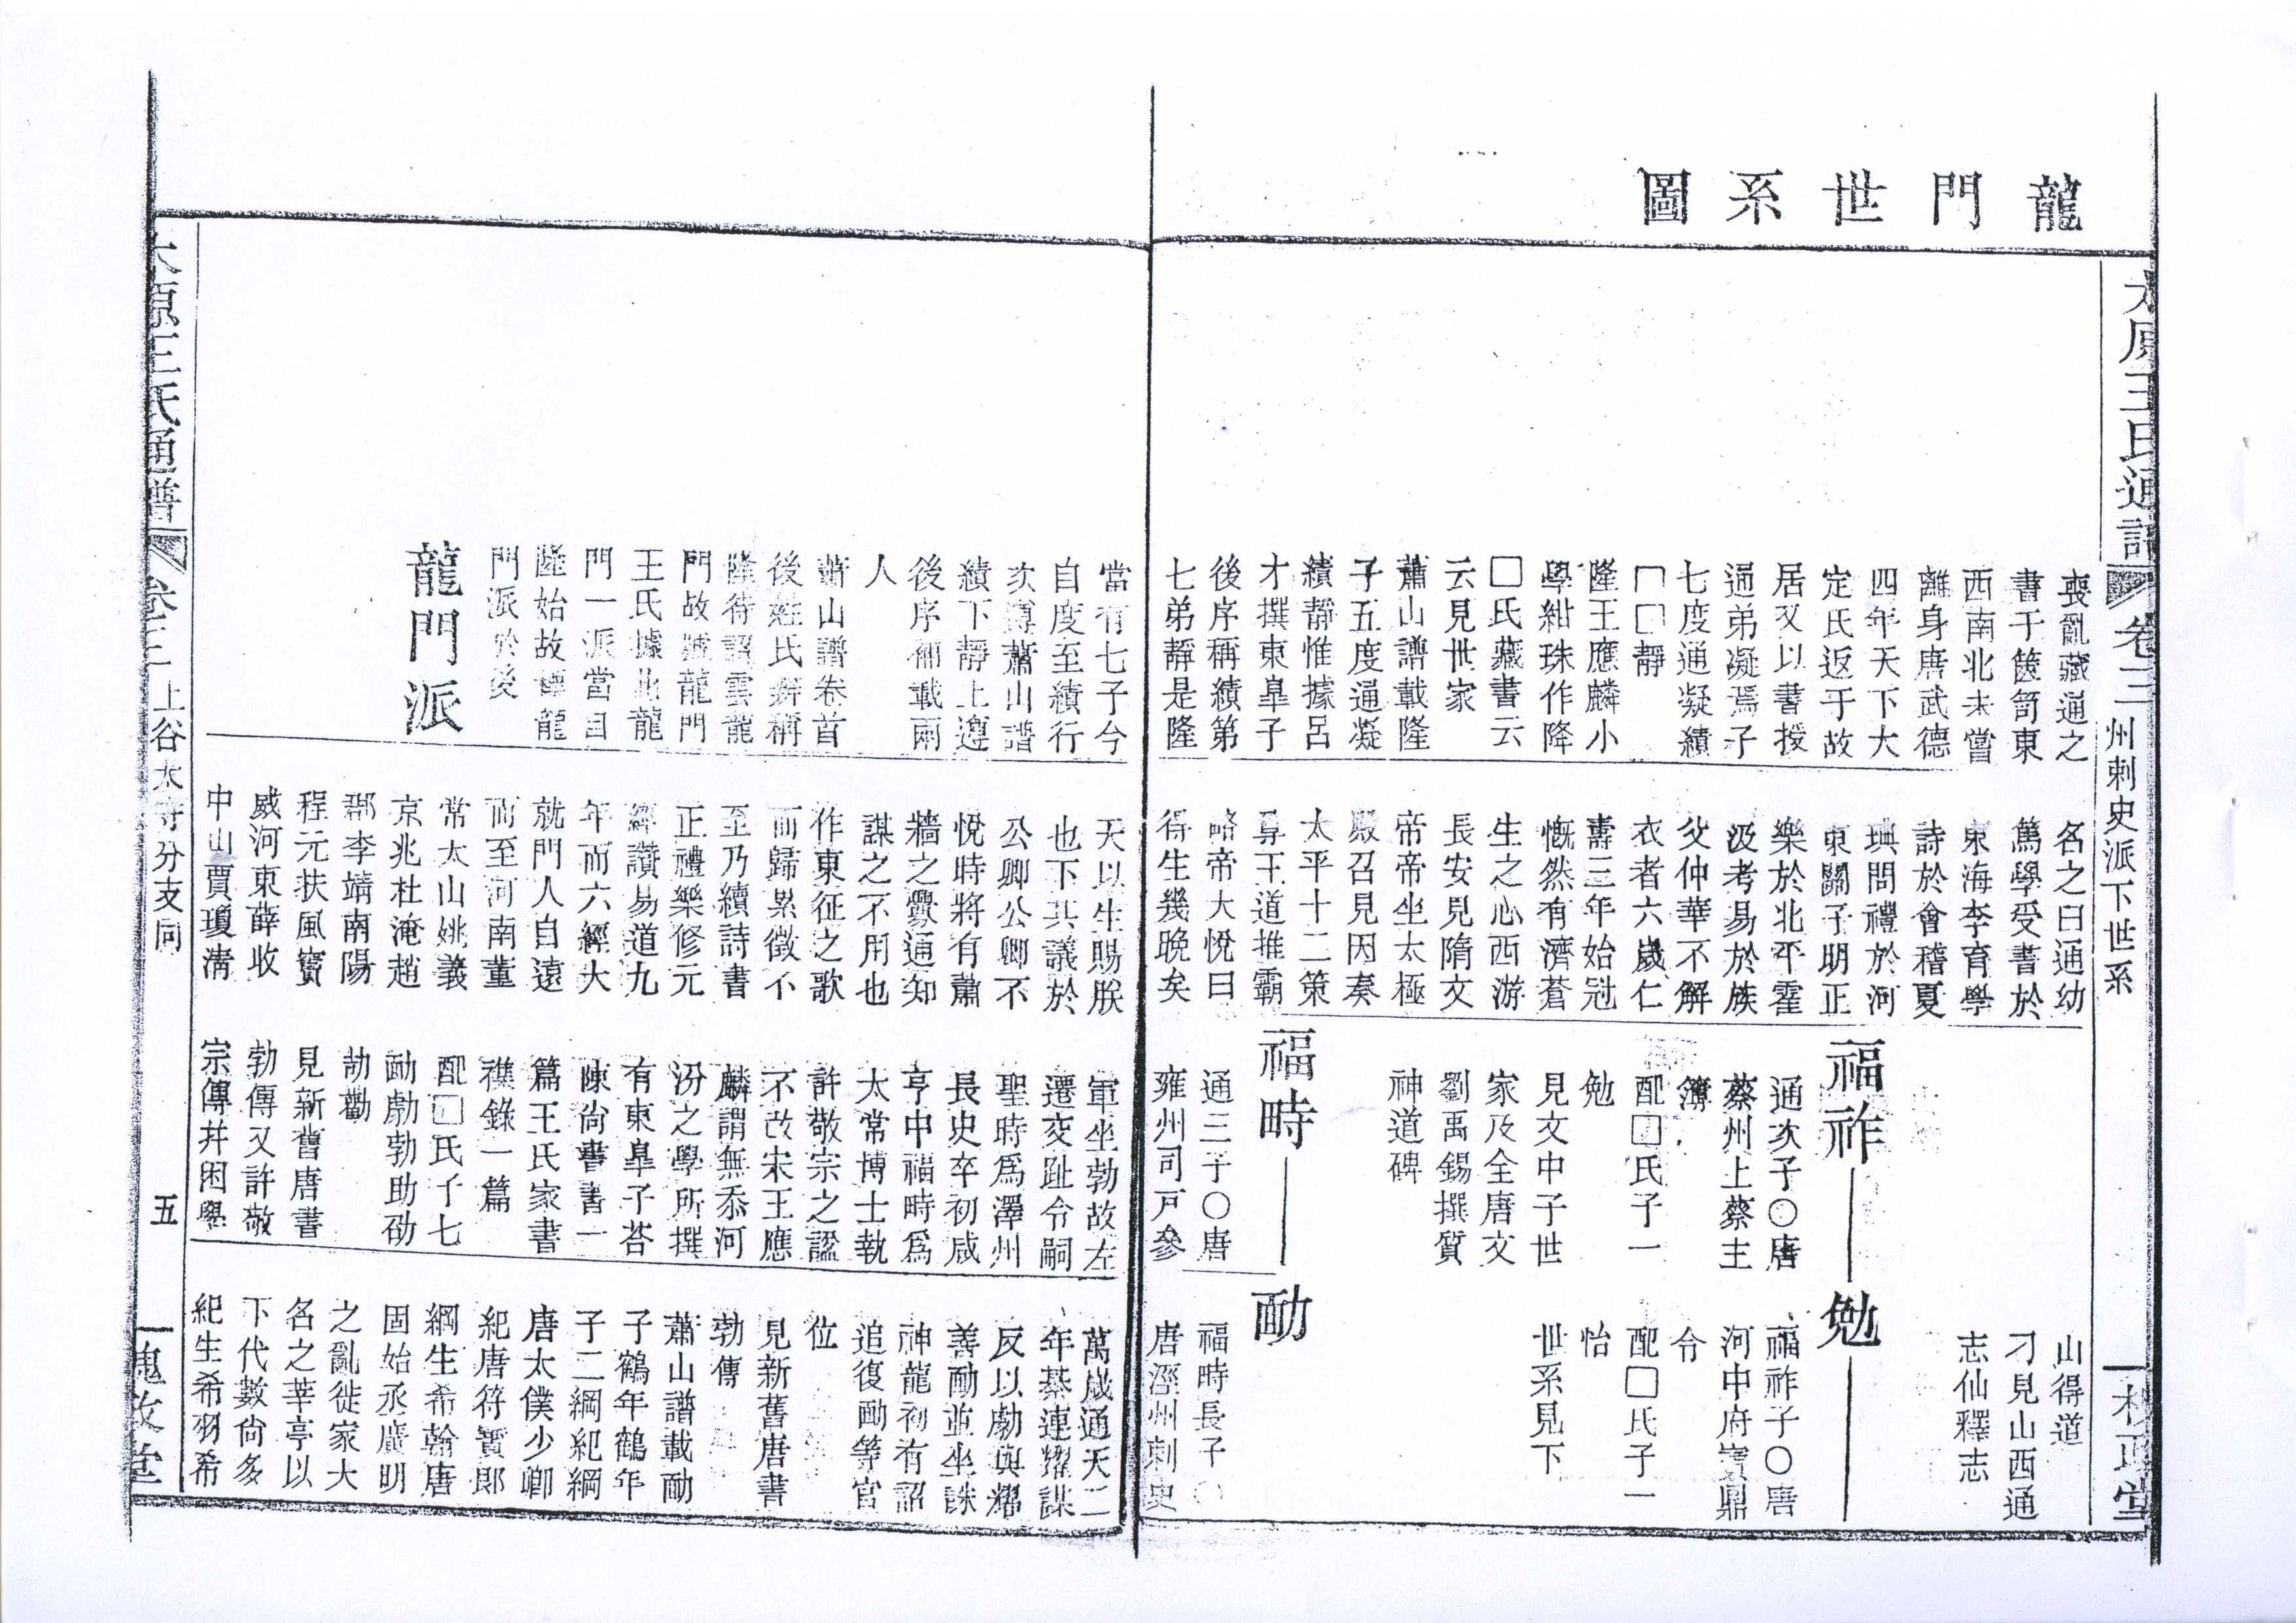 龍門世系圖
太原王氏通譜
卷三
州刺史派下世系
喪亂藏通之
書于篋笥東
西南北未嘗
離身唐武德
四年天下大
定氏返于故
居又以書授
通弟凝焉子
七度通凝績
□□靜
隆王應麟小
學紺珠作降
□氏藏書云
云見世家
蕭山譜載隆
子五度通凝
績靜惟據呂
才撰東皐子
後序稱績第
七弟靜是隆
名之曰通幼
篤學受書於
東海李育學
詩於會稽夏
琠問禮於河
東關子明正
樂於北平霍
汲考易於族
父仲華不解
衣者六歲仁
壽三年始冠
慨然有濟蒼
生之心西游
長安見隋文
帝帝坐太極
殿召見因奏
太平十二策
尊王道推霸
略帝大悅曰
得生幾晚矣
福祚
通次子○唐
蔡州上蔡主
簿
配□氏子一
勉
見文中子世
家及全唐文
劉禹錫撰質
神道碑
福時
通三子○唐
雍州司戸參
山得道
刁見山西通
志仙釋志
勉
福祚子○唐
河中府寶鼎
令
配□氏子一
怡
世系見下
勔
福時長子○
唐涇州刺史
當有七子今
自度至績行
次博蕭山譜
績下靜上遵
後序補載兩
人
蕭山譜卷首
後姓氏辨稱
隆待詔雲龍
門故號龍門
王氏據此龍
門一派當自
隆始故標龍
門派於後
龍門派
天以生賜朕
也下其議於
公卿公卿不
悅時將有蕭
牆之釁通知
謀之不用也
作東征之歌
而歸累徵不
至乃續詩書
正禮樂修元
經讚易道九
年而六經大
就門人自遠
而至河南董
常太山姚義
京兆杜淹趙
郡李靖南陽
程元扶風竇
威河東薛收
中山賈瓊淸
軍坐勃故左
遷交趾令嗣
聖時爲澤州
長史卒初咸
亨中福時爲
太常博士執
許敬宗之謚
不改宋王應
麟謂無忝河
汾之學所撰
有東皐子荅
陳尙書書一
篇王氏家書
襍錄一篇
配□氏子七
勔勮勃助劭
劼勸
見新舊唐書
勃傳又許敬
宗傳幷困學
萬歲通天二
年綦連耀謀
反以勮與耀
善勔並坐誅
神龍初有詔
追復勔等官
位
見新舊唐書
勃傳
蕭山譜載勔
子鶴年鶴年
子二綱紀綱
唐太僕少卿
紀唐符寶郞
綱生希翰唐
固始丞廣明
之亂徙家大
名之莘亭以
下代數尙多
紀生希羽希
太原王氏通譜
卷三
上谷太守分支同
五
槐政堂